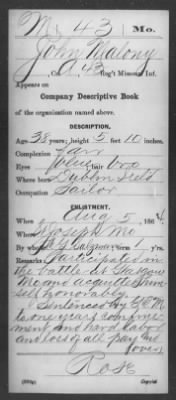 M | 43 | Mo.
John Malony
Co. , 43 Reg't Missouri Inf.
Appears on
Company Descriptive Book
of the organization named above.
DESCRIPTION.
Age 38 years; height 5 feet 10 inches.
Complexion Fair
Eyes Blue ; hair Bro
Where born Dublin
Occupation Sailor
ENLISTMENT.
When Aug 5 , 1864
Where St Joseph Mo
By whom ; term y'rs.
Remarks: Participated in
the battle at Glasgow
Mo and acquitted him-
self honorably.
Sentenced by G.C.M.
to one years confine-
ment and hard labor
and loss of all pay
(over)
Rose
Copyist.